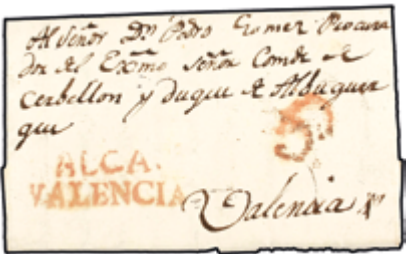 Al Señor Dn Pedro Gomez Procura
dor del Exmo Señor Comde de
Cerbellon y duque de Alburquer
que
ALCA.
VALENCIA
Valencia